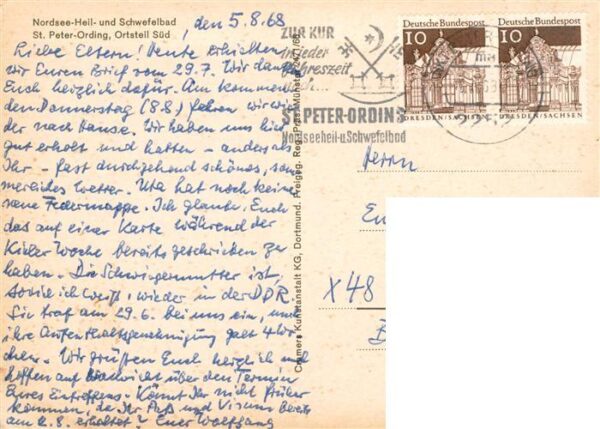 Nordsee-Heil- und Schwefelbad
St. Peter-Ording, Ortsteil Süd
, den 5.8.68
Liebe Eltern! Heute erhielten
wir Euren Brief vom 29.7. Wir danken
Euch herzlich dafür. Am kommen
den Donnerstag (8.8) fahren wir wie
der nach hause. Wir haben uns hier
gut erholt und hatten – anders als
Ihr – fast durchgehend schönes, som
merliches Wetter. Uta hat noch keine
neue Federmappe. Ich glaube, Euch
das auf einer Karte während der
Kieler Woche bereits geschrieben zu
haben. Die Schwiegermutter ist,
soviel ich weiß, wieder in der DDR.
Sie traf am 29.6. bei uns ein, und
ihre Aufenthaltsgenehmigung galt 4 Wo
chen. Wir grüßen Euch herzlich und
hoffen auf Nachricht über den Termin
Eures Eintreffens. Könnt Ihr nicht früher
kommen, da Ihr Paß und Visum bereits
am 2.8. erhaltet? Euer Wolfgang
Cramers Kunstanstalt KG, Dortmund. Freigeg. Reg. Präs. Münster
ZUR KUR
in jeder
Jahreszeit
ST. PETER-ORDING
Nordseeheil-u.Schwefelbad
Deutsche Bundespost
10
DRESDEN/SACHSEN
Deutsche Bundespost
10
DRESDEN/SACHSEN
Herrn
X48